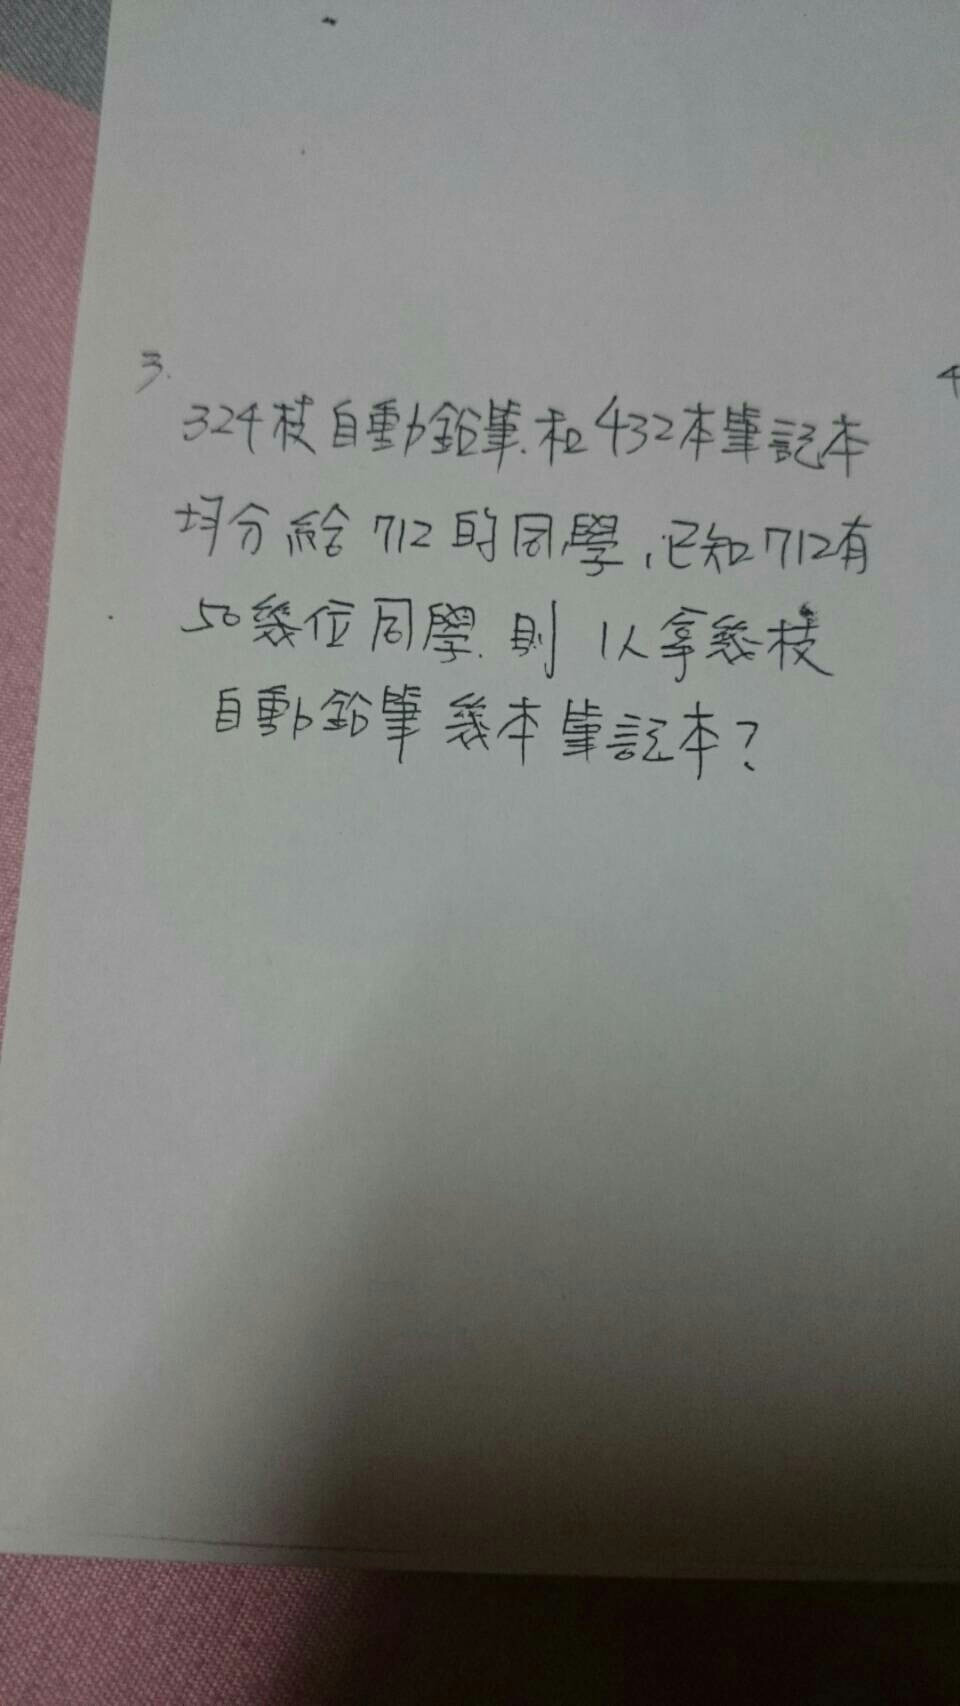 3.
324枝自動鉛筆和432本筆記本
均分給712的同學,已知712有
50幾位同學.則 1人拿幾枝
自動鉛筆幾本筆記本?
4